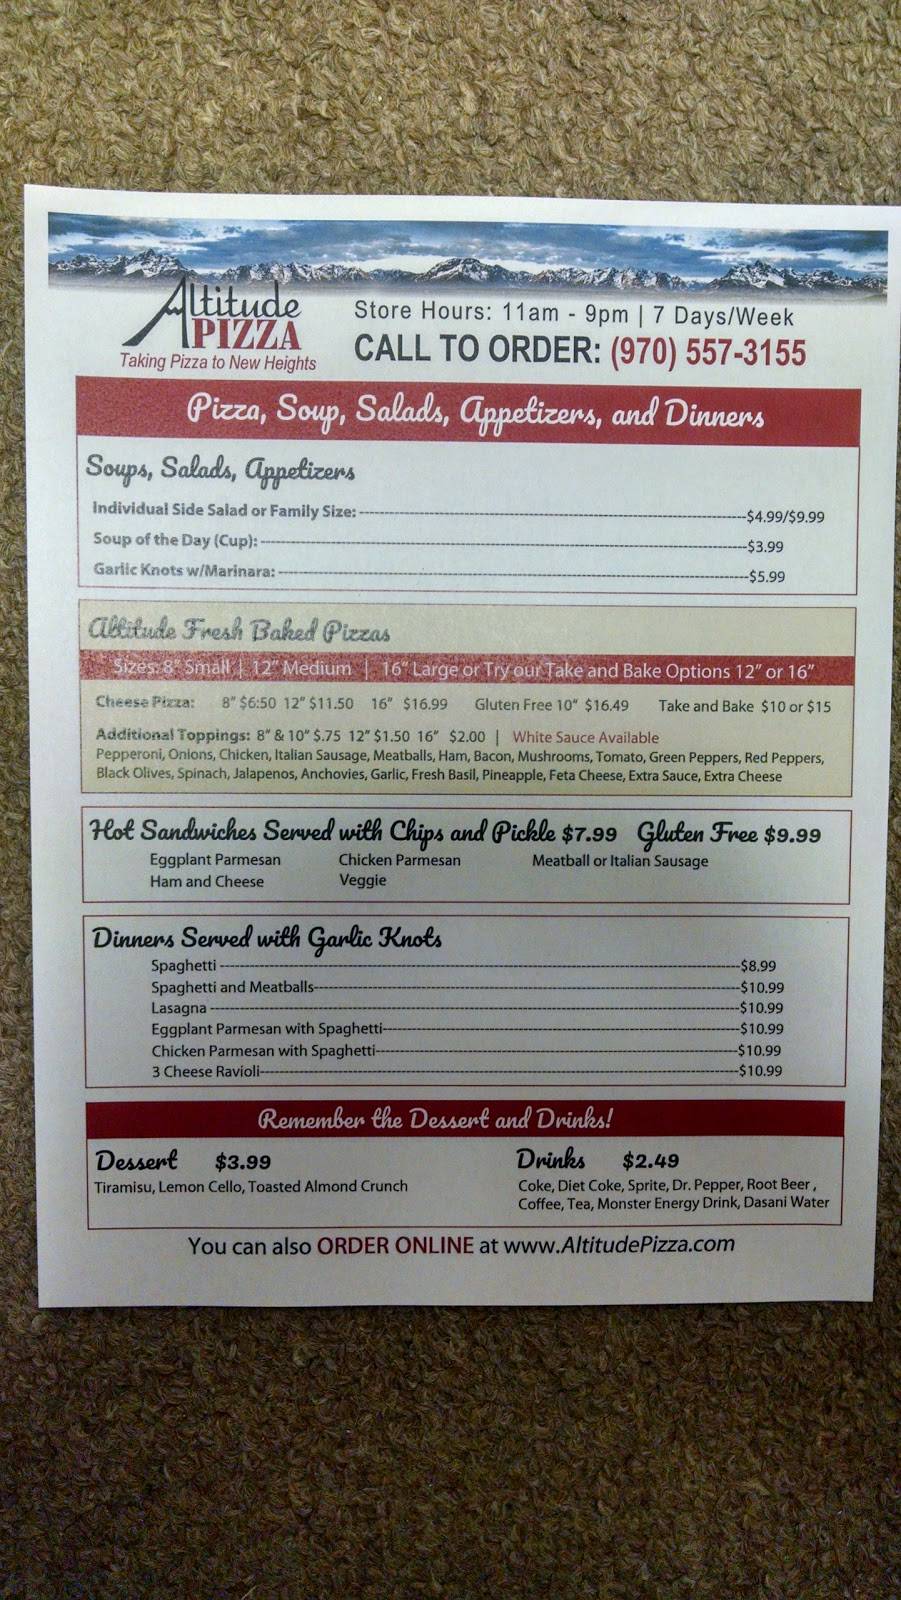 Altitude
PIZZA
Taking Pizza to New Heights
Store Hours: 11am - 9pm | 7 Days/Week
CALL TO ORDER: (970) 557-3155
Pizza, Soup, Salads, Appetizers, and Dinners
Soups, Salads, Appetizers
Individual Side Salad or Family Size: $4.99/$9.99
Soup of the Day (Cup): $3.99
Garlic Knots w/Marinara: $5.99
Altitude Fresh Baked Pizzas
Sizes: 8" Small | 12" Medium | 16" Large or Try our Take and Bake Options 12" or 16"
Cheese Pizza: 8" $6:50 12" $11.50 16" $16.99 Gluten Free 10" $16.49 Take and Bake $10 or $15
Additional Toppings: 8" & 10" $.75 12" $1.50 16" $2.00 | White Sauce Available
Pepperoni, Onions, Chicken, Italian Sausage, Meatballs, Ham, Bacon, Mushrooms, Tomato, Green Peppers, Red Peppers,
Black Olives, Spinach, Jalapenos, Anchovies, Garlic, Fresh Basil, Pineapple, Feta Cheese, Extra Sauce, Extra Cheese
Hot Sandwiches Served with Chips and Pickle $7.99 Gluten Free $9.99
Eggplant Parmesan Chicken Parmesan Meatball or Italian Sausage
Ham and Cheese Veggie
Dinners Served with Garlic Knots
Spaghetti $8.99
Spaghetti and Meatballs $10.99
Lasagna $10.99
Eggplant Parmesan with Spaghetti $10.99
Chicken Parmesan with Spaghetti $10.99
3 Cheese Ravioli $10.99
Remember the Dessert and Drinks!
Dessert $3.99 Drinks $2.49
Tiramisu, Lemon Cello, Toasted Almond Crunch
Coke, Diet Coke, Sprite, Dr. Pepper, Root Beer ,
Coffee, Tea, Monster Energy Drink, Dasani Water
You can also ORDER ONLINE at www.AltitudePizza.com